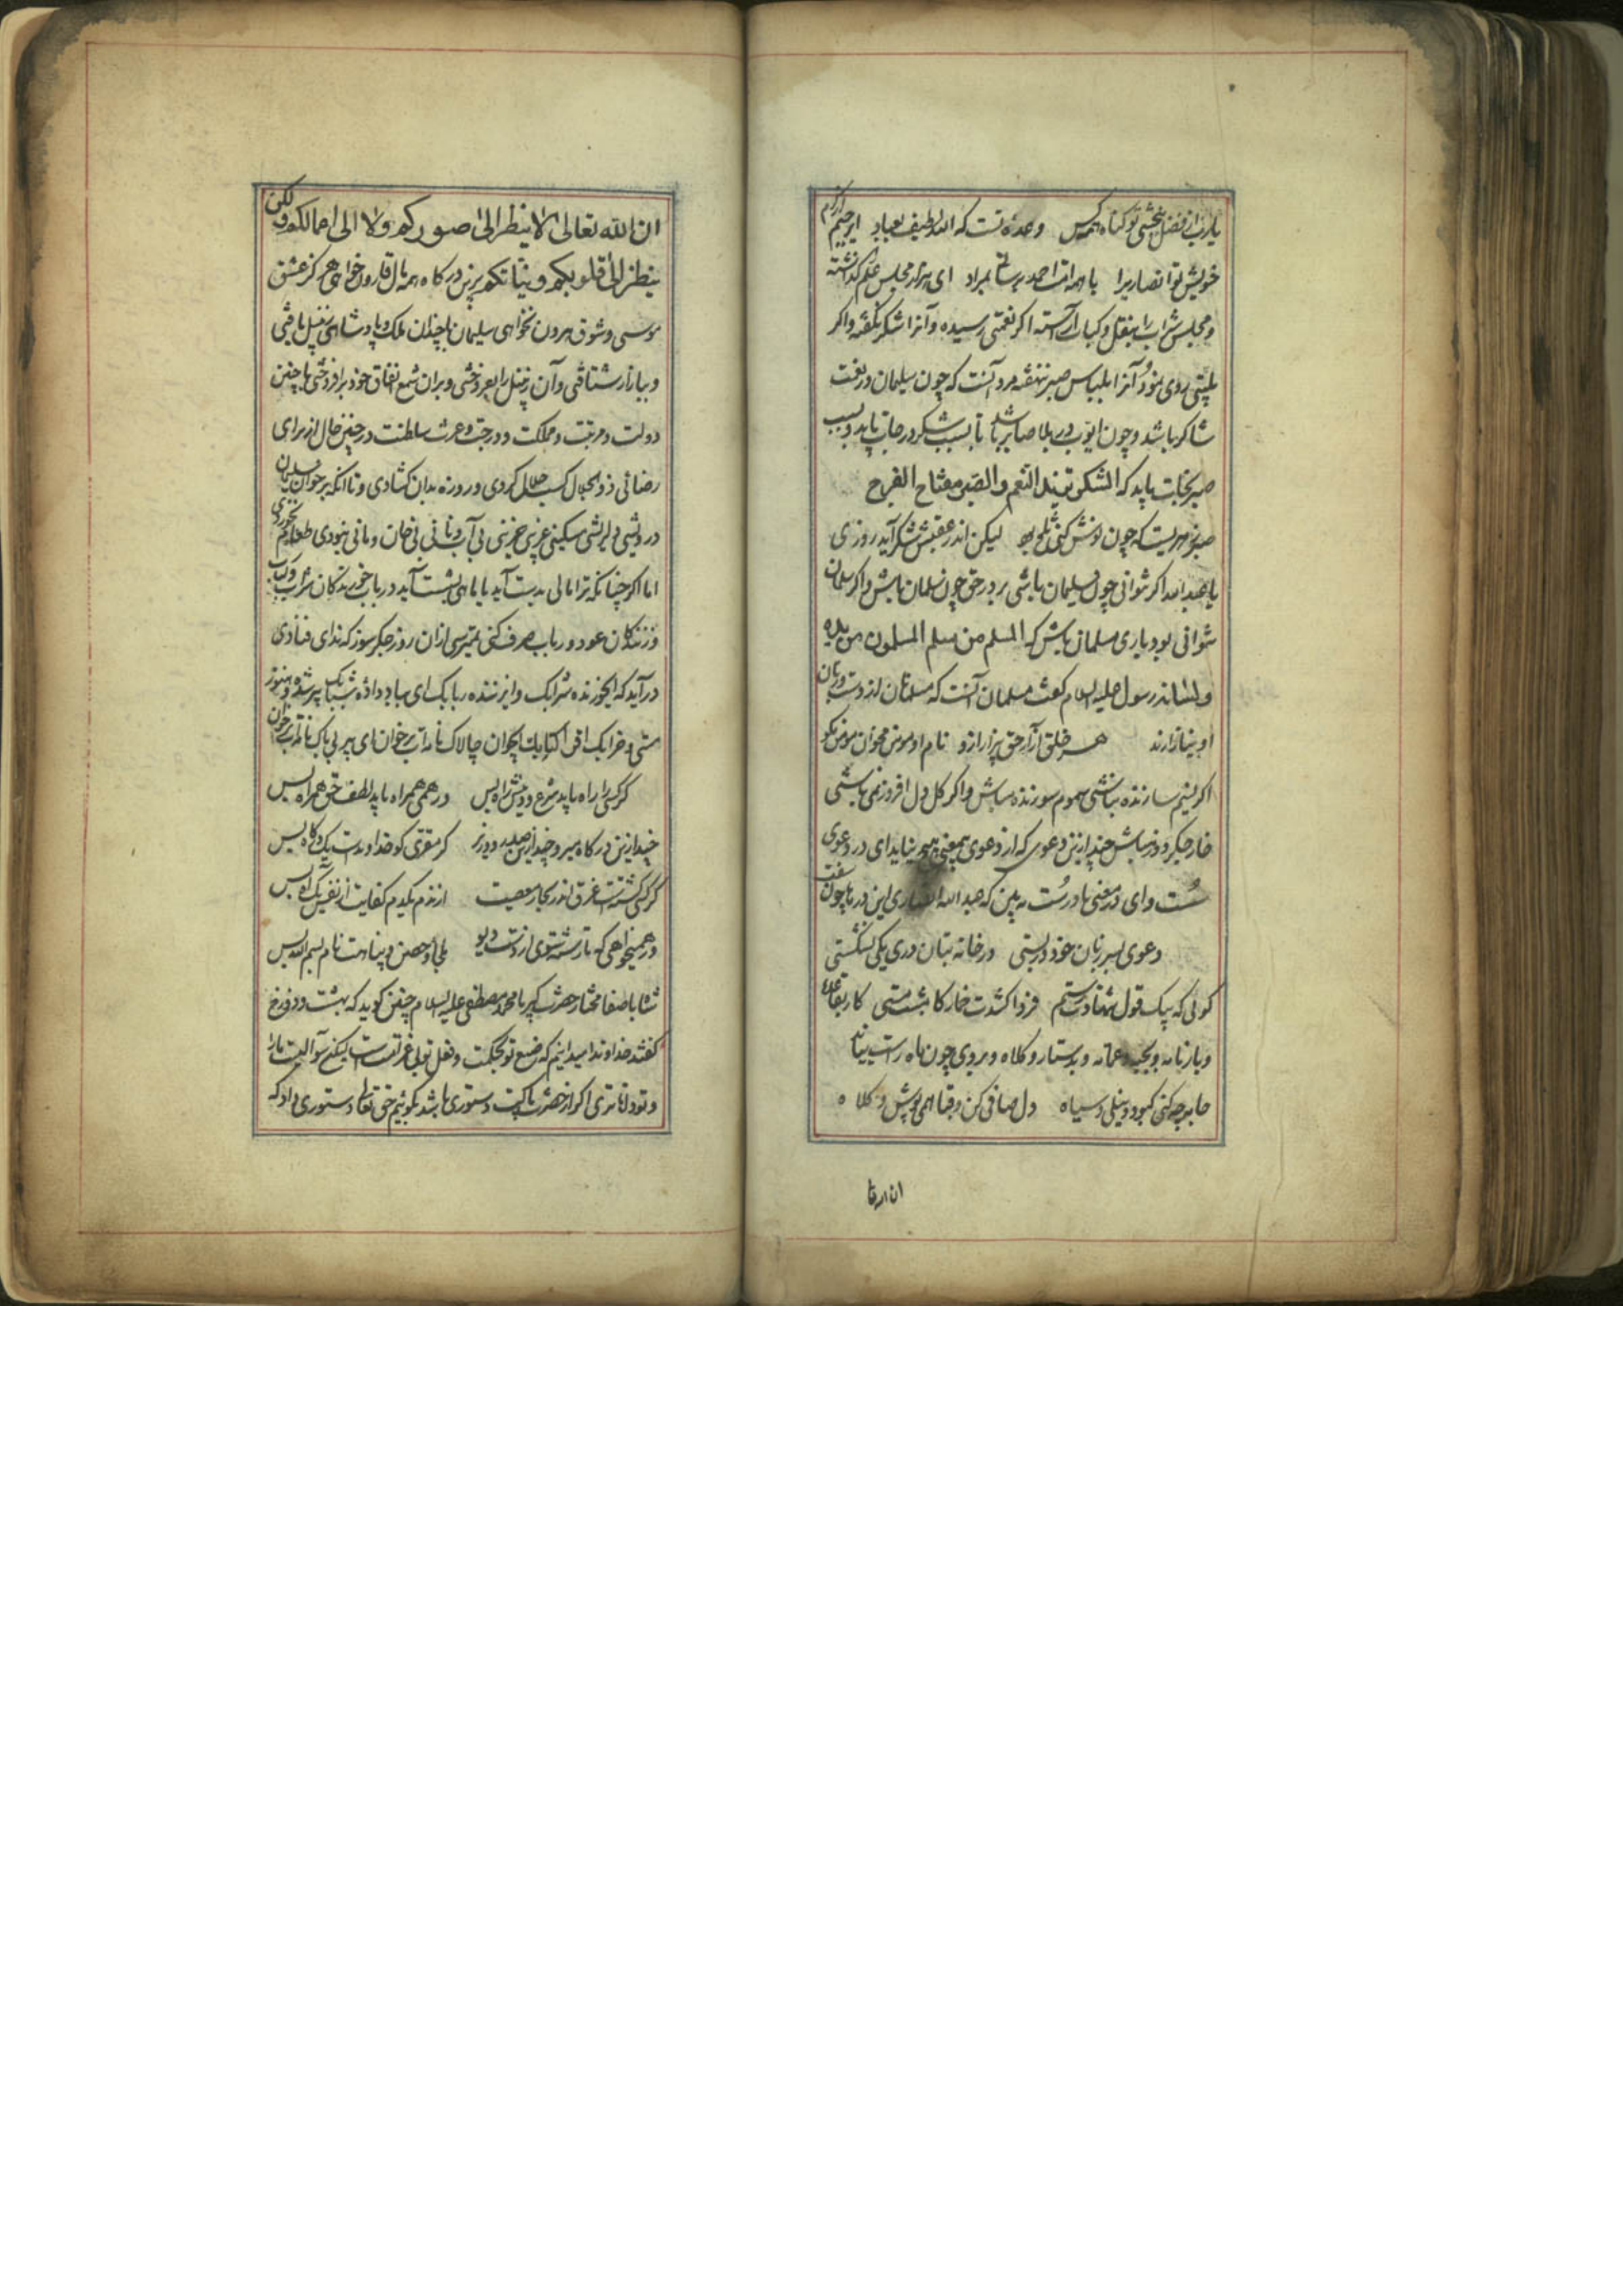 یارب از فضل ببخشی تو گناه همه کس وعده تست که الله لطیف بعباد
خویش تو انصاریرا با همه امت احمد برسانی بمراد ای پیر از مجلس علم گذشته
و مجلس شراب را بنقل و کباب آراسته اگر نعمتی رسیده و آنرا شکر نگفته و اگر
روی نمود آنرا بلباس صبر ننهفته مرد آنست که چون سلیمان در نعمت
شاکر باشد و چون ایوب در بلا صابر باشد تا بسبب شکر درجات یابد و بسبب
صبر نجات یابد که الشکر تزید النعم والصبر مفتاح الفرج
صبر زهریست که چون نوش کنی تلخ بود لیکن اندر عقبش شکر آید روزی
یا عبدالله اگر نتوانی چون سلیمان باشی برو در حق چون سلمان باش و اگر سلمان
نتوانی بود باری مسلمان باش که المسلم من سلم المسلمون من یده
و لسانه رسول علیه السلام گفت مسلمان آنست که مسلمانان از دست و زبان
او نیازارند هر خلق آزار حق بیزار ازو نام او مومن مخوان مومن مگو
اگر نسیم سازنده نباشی سموم سوزنده مباش و اگر گل دل افروز نمی باشی
خار جگر دوز مباش چند ازین دعوی که از دعوی بیمعنی هیچ نیاید ای در دعوی
سست و ای در معنی نادرست به بین که عبدالله انصاری این درها چون سفت
دعوی بسر زبان خود در بستی در خانه بتان دری یکی نشکستی
گوئی که بیک قول شهادت رستم فردا کندت خمار کامشب مستی
و بارنامه و بجبه و عمامه و بدستار و کلاه و بروی چون ماه راست نیاید
جامه چه کنی کبود و نیلی و سیاه دل صافی کن و قبا همی پوش و کلاه
ان الله تعالی لا ینظر الی صورکم ولا الی اعمالکم ولکن
ینظر الی قلوبکم و نیاتکم برین درگاه همه مال قارون خواهی هرگز عشق
موسی و شوق هرون نخواهی سلیمان با چندان ملک و پادشاهی زنبیل بافتی
و ببازار شتافتی و آن زنبیل را بفروختی و بران شمع نفاق خود برافروختی با چنین
دولت و مرتبت و مملکت و درجت و عزت سلطنت در چنین حال از برای
رضائی ذوالجلال کسب حلال کردی و روزه بدان گشادی و تا آنکه بر خوان سلیمان
درویشی دلریشی مسکینی غریبی حزینی بی آب و نانی بی خان و مانی نبودی طعام نخوردی
اما اگر چنانکه ترا مالی بدست آید یا ماهی بشست آید در باب خورندگان شراب و کباب
و زنندگان عود و رباب صرف کنی نمیترسی از آن روز جگرسوز که ندای منادی
درآید که ایخورنده شرابک و ای زننده ربابک ای بباد داده شبابک پیر شده و هنوز
مستی و خرابک اقرا کتابک ایجوان چالاک نامه ات برخوان ای پیر بی باک نامه ات برخوان
گر کسی را راه باید شرع و دینش راه بس ور همی همراه باید لطف حق همراه بس
چند ازین درگاه میر و چند ازین صدر وزیر گر مقری کو خداوندست یک درگاه بس
گر کسی گشتست غرق اندر بحار معصیت از ندم یکدم کفایت از نفس یک آه بس
ور همیخواهی که تا رسته شوی از دست دیو ملجا و حصن و پناهت نام بسم الله بس
شاه با صفا مختار حضرت کبریا محمد مصطفی علیه السلام چنین گوید که بهشت و دوزخ
گفتند خداوندا میدانیم که صنع تو بحکمت و فعل تو بی غرتست لیکن سوالیست ما را
و تو داناتری اگر از حضرت پاکت دستوری باشد بگوئیم حق تعالی دستوری داد که